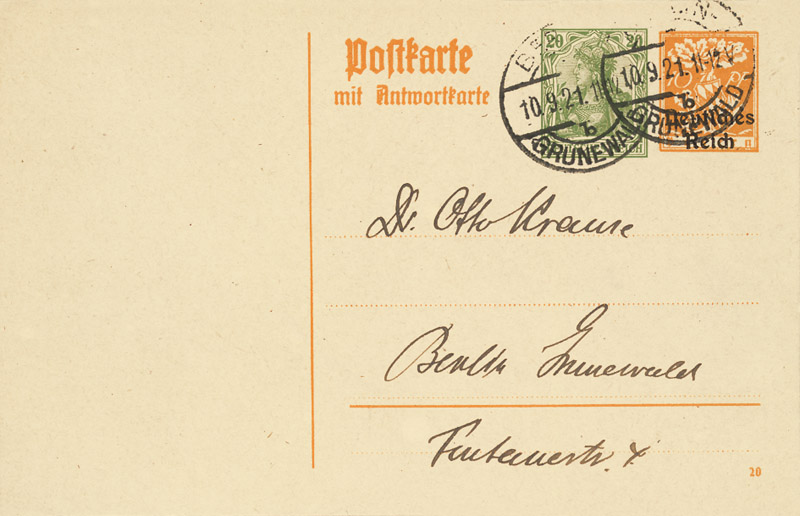 Postkarte
mit Antwortkarte
20 20
10.9.21. 11-12V.
b
GRUNEWALD
10.9.21. 11-12V.
b
GRUNEWALD
Deutsches
Reich
Dr. Otto Krause
Berlin Grunewald
20